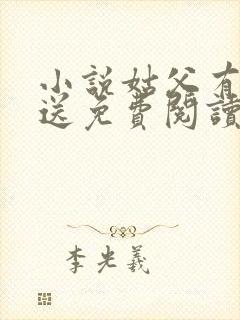 小說姑父有
送免費閱讀
李光羲